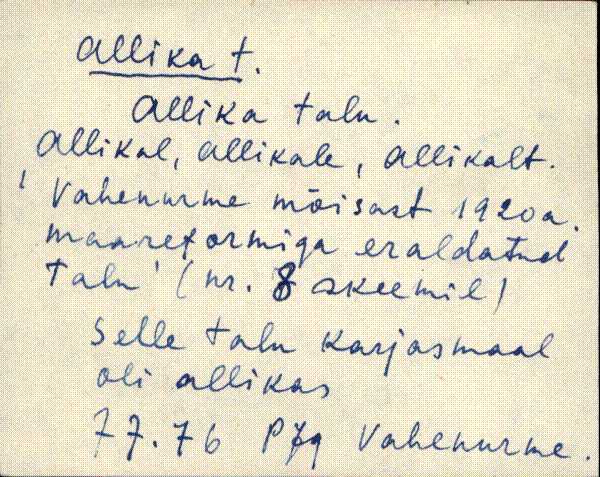 Allika t.
Allika talu.
Allikal, Allikale, Allikalt.
' Vahenurme mõisast 1920a.
maareformiga eraldatud
talu' (nr. 8 skeemil)
Selle talu karjasmaal
oli allikas
77.76 PJg Vahenurme.